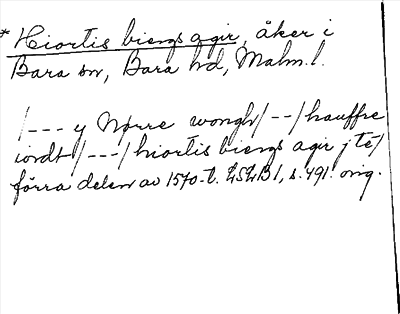 * Hiortis biergs agir, åker i
Bara sn, Bara hd, Malm. l.
/--- y Nørre wongh/--/hauffre
iordt/---/hiortis biergs agir j té/
förra delen av 1570-t. LSLB 1, s. 491. orig.